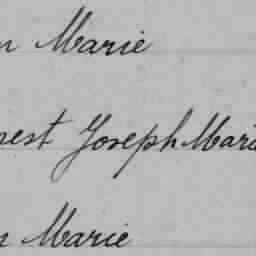 Marie
nest Joseph Marie
Marie